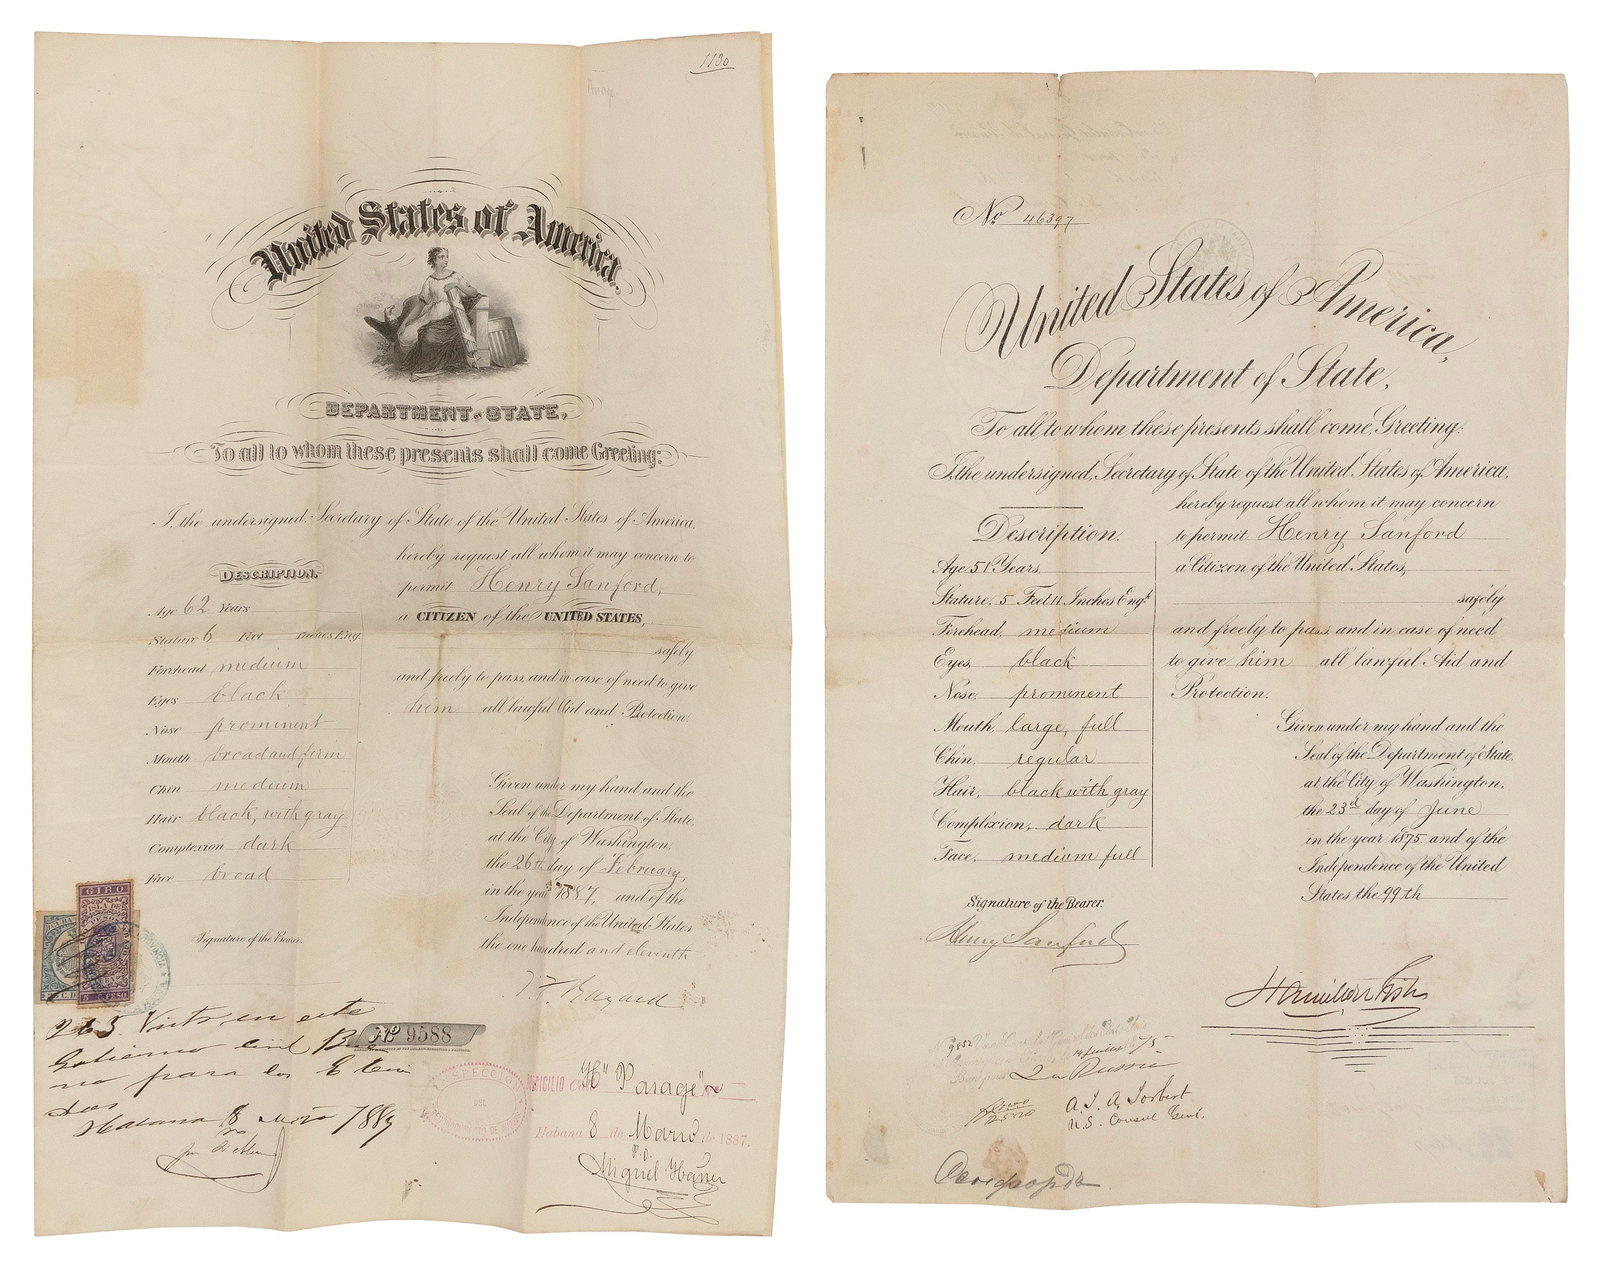 1130
United States of America.
DEPARTMENT OF STATE,
To all to whom these presents shall come Greeting:
I, the undersigned, Secretary of State of the United States of America,
hereby request all whom it may concern to
permit Henry Sanford,
a CITIZEN of the UNITED STATES,
safely
and freely to pass, and in case of need to give
him all lawful Aid and Protection.
DESCRIPTION.
Age 62 Years
Stature 6 Feet Inches Eng.
Forehead medium
Eyes black
Nose prominent
Mouth broad and firm
Chin medium
Hair black, with gray
Complexion dark
Face broad
Signature of the Bearer.
Given under my hand and the
Seal of the Department of State,
at the City of Washington,
the 26th day of February,
in the year 1887, and of the
Independence of the United States
the one hundred and eleventh
T. F. Bayard
GIRO
ISLA DE
No 9588
263 Visto en este
Gobierno civil
para los
Habana 8 1889
INSPECCION
DEL
DOMICILIO
Habana 8 de Marzo de 1887.
P.O.
Miguel
No 46397
United States of America,
Department of State,
To all to whom these presents shall come, Greeting:
I, the undersigned, Secretary of State of the United States of America,
hereby request all whom it may concern
to permit Henry Sanford
a Citizen of the United States,
safely
and freely to pass and in case of need
to give him all lawful Aid and
Protection.
Description.
Age 51 Years,
Stature, 5 Feet 11 Inches Engh
Forehead, medium
Eyes, black
Nose, prominent
Mouth, large, full
Chin, regular
Hair, black with gray
Complexion, dark
Face, medium full
Signature of the Bearer.
Henry Sanford
Given under my hand and the
Seal of the Department of State,
at the City of Washington,
the 23rd day of June
in the year 1875 and of the
Independence of the United
States the 99th
Hamilton Fish
9852
La Russie
A. T. A. Torbert
U.S. Consul Genl.